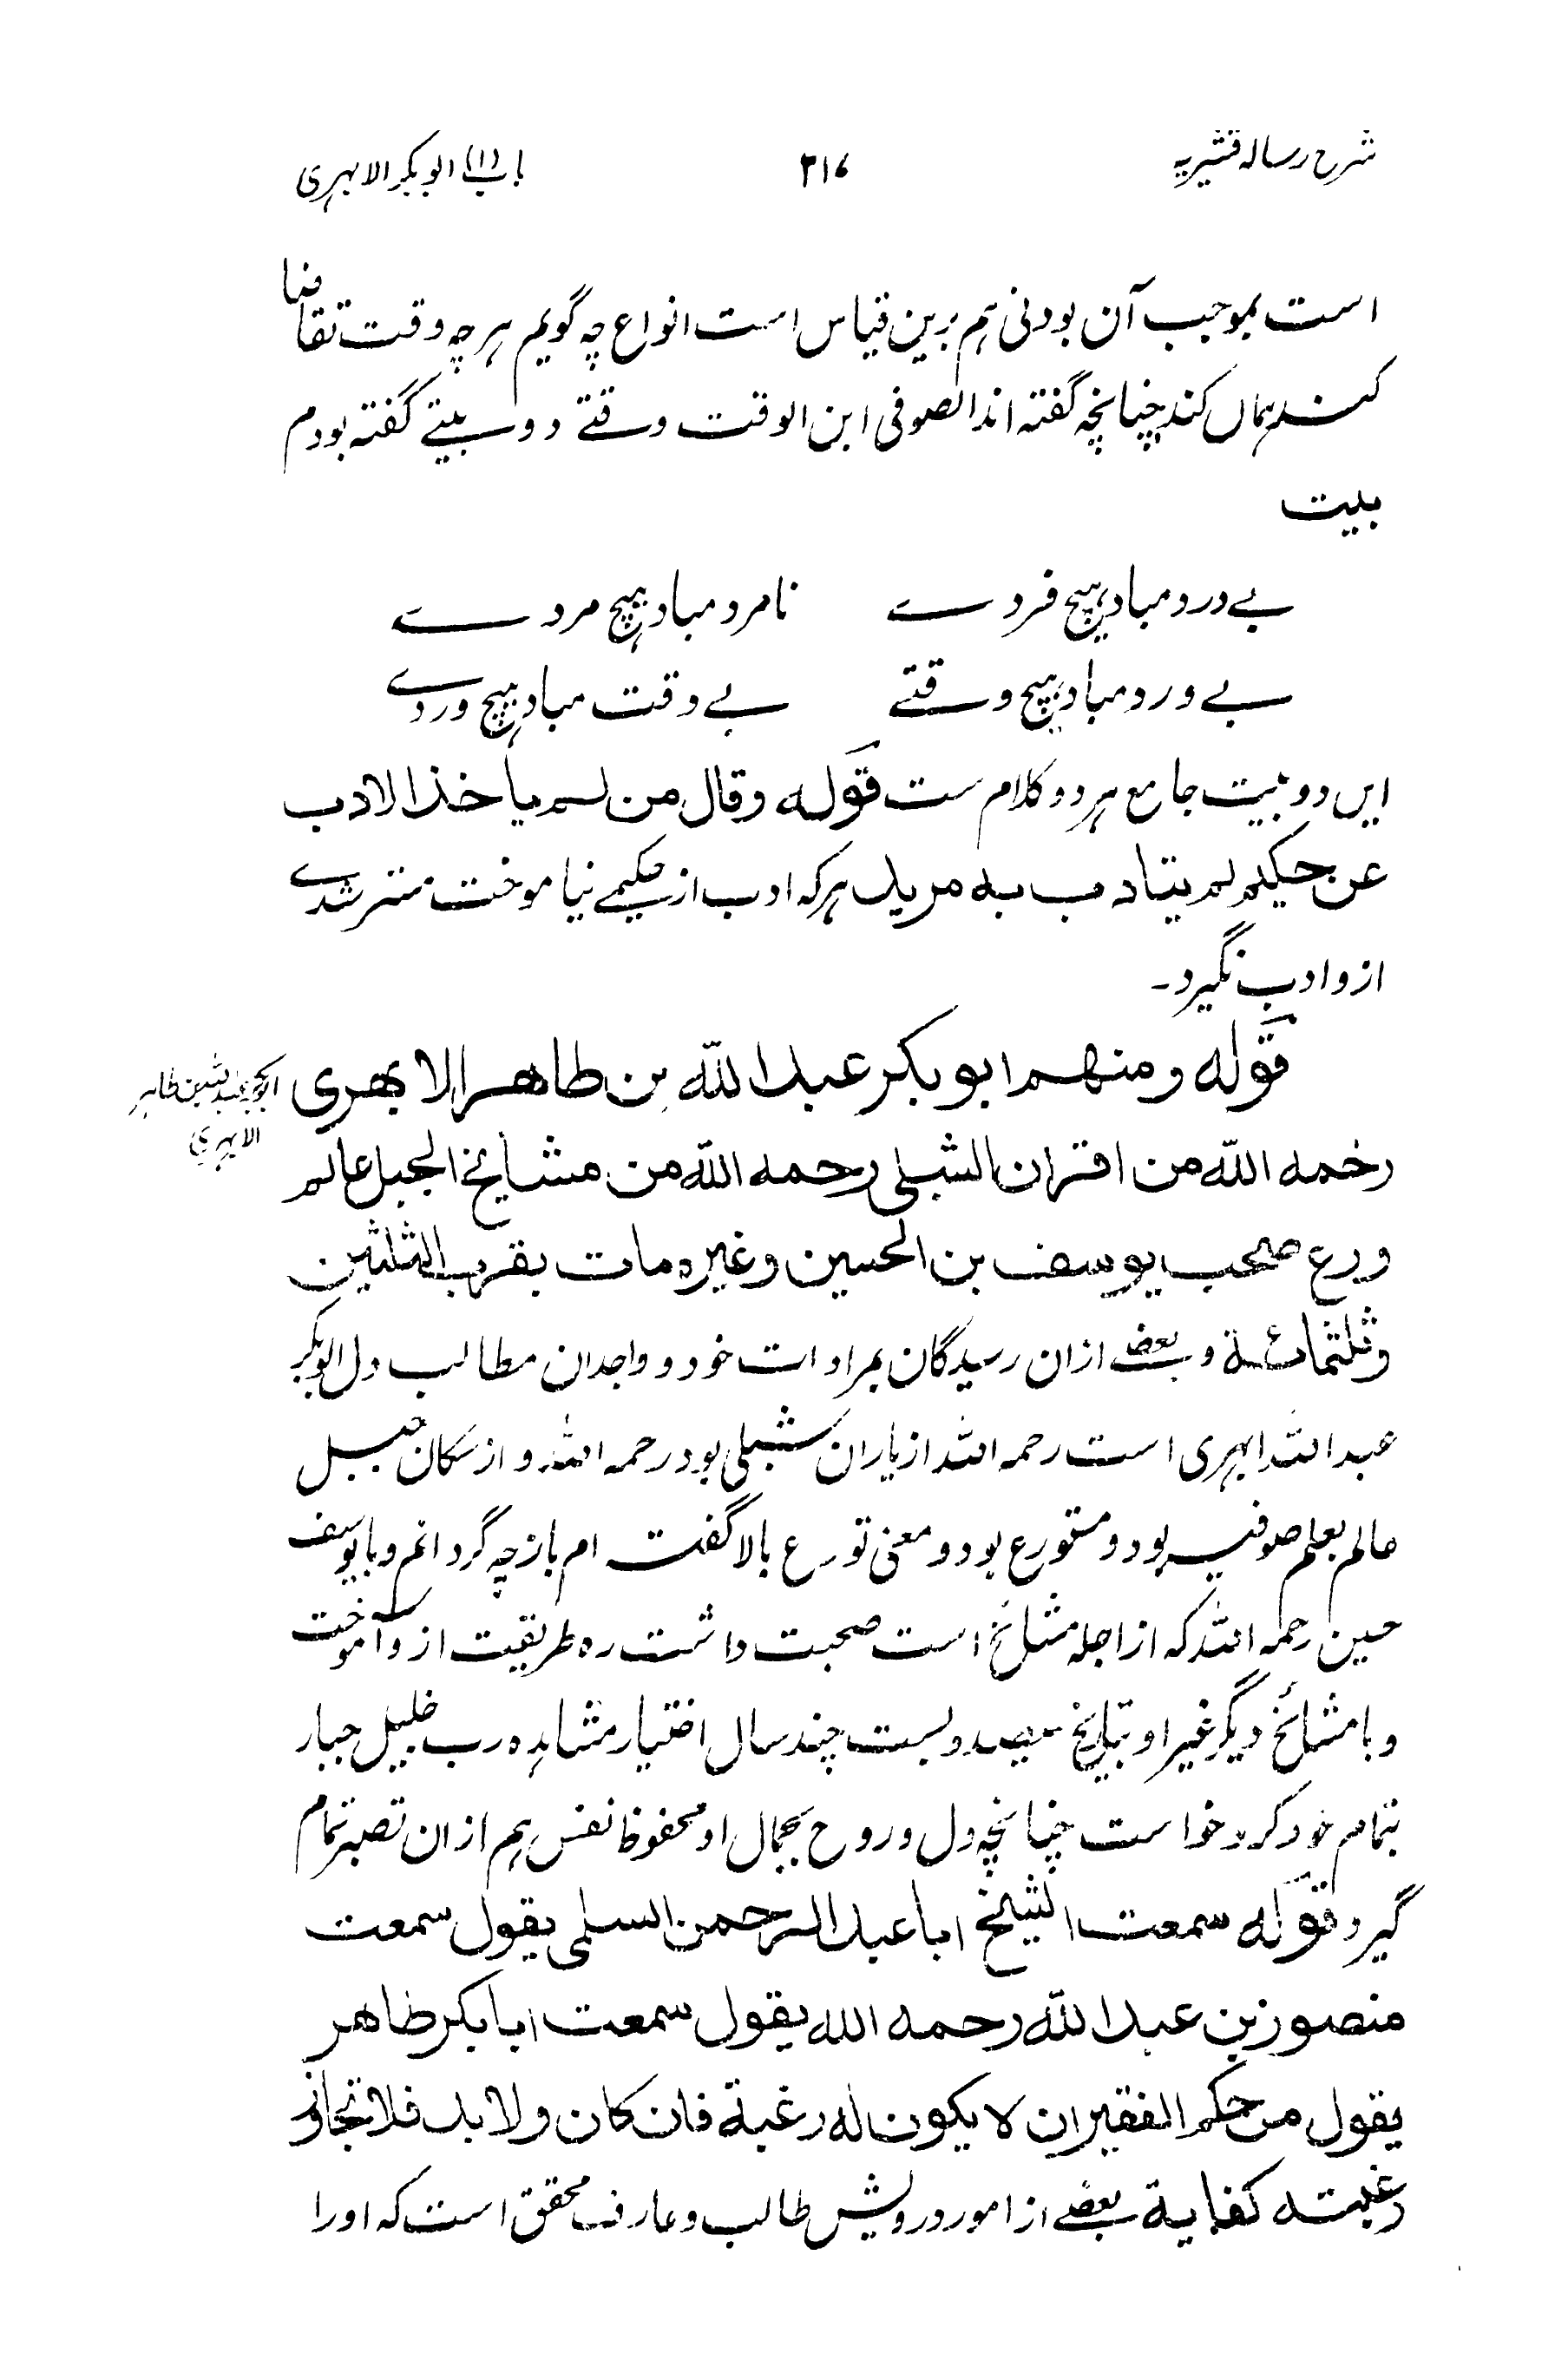 شرح رساله قشیریه
۳۱۷
باب (۱) ابوبکر الابہری
است بموجب آن بودنی ہم برین قیاس است انواع چہ گویم ہر چہ وقت تقاضا
کند ہماں کند چنانچہ گفتہ اند الصوفی ابن الوقت وقتے دو بیتے گفتہ بودم
بیت
بے درد مباد ہیچ فردے نامرد مباد ہیچ مردے
بے ورد مباد ہیچ وقتے بے وقت مباد ہیچ وردے
ایں دو بیت جامع ہر دو کلام ست قوله وقال من لم یأخذ الادب
عن حکیم لم یتادب به مرید ہر کہ ادب از حکیمے نیاموخت مسترشدے
ازو ادب نگیرد۔
قوله ومنهم ابو بکر عبد اللّه بن طاهر الابهری
ابوبکر عبد اللہ بن طاہر
الابہری
رحمه اللّه من اقران الشبلی رحمه اللّه من مشایخ الجبل عالم
ورع صحب یوسف بن الحسین وغیره مات بقرب الثلثین
وثلثمائة وبعضے ازان رسیدگان بمرادات خود و واجدان مطالب دل ابوبکر
عبد اللہ ابہری است رحمہ اللہ از یاران شبلی بود رحمہ اللہ و از سکان جبل
عالم بعلم صوفیہ بود و متورع بود و معنی تورع بالا گفتہ ام باز چہ گردانم و با یوسف
حسین رحمہ اللہ کہ از اجلہ مشائخ است صحبت داشت رہ طریقت ازو آموخت
و با مشائخ دیگر غیر او بتاریخ سیصد و بست چند سال اختیار مشاہدہ رب جلیل جبار
بتمام خود کرد خواست چنانچہ دل و روح بجمال او محفوظ نفس ہم از ان نصیبہ تمام
گیرد قوله سمعت الشیخ ابا عبد الرحمن السلمی یقول سمعت
منصور بن عبد اللّه رحمه اللّه یقول سمعت ابا بکر طاهر
یقول من حکم الفقیر ان لا یکون له رغبة فان کان ولا بد فلا تجاوز
رغبته کفایة بعضے از امور درویش طالب و عارف محقق است کہ اورا